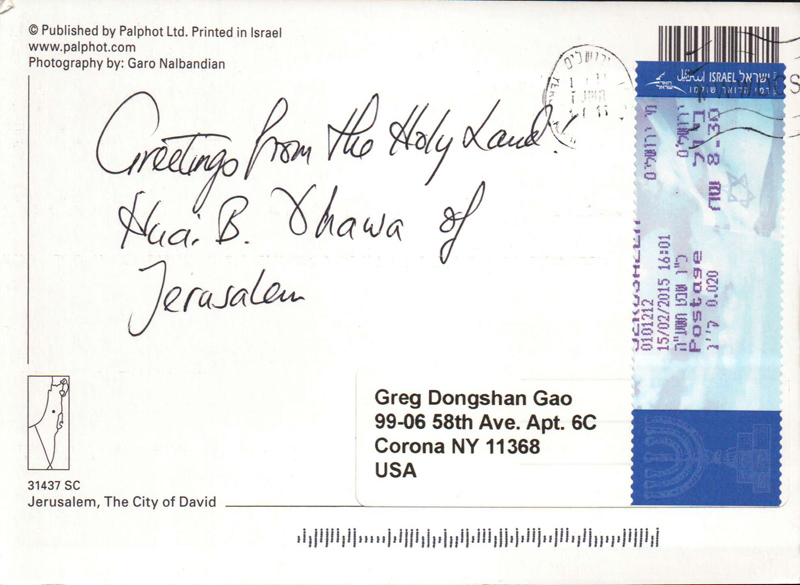 © Published by Palphot Ltd. Printed in Israel
www.palphot.com
Photography by: Garo Nalbandian
Greetings from the Holy Land!
B.
of
Jerusalem
ישראל ISRAEL
ירושלים
8-30
0101212
15/02/2015 16:01
Postage
0.020
Greg Dongshan Gao
99-06 58th Ave. Apt. 6C
Corona NY 11368
USA
31437 SC
Jerusalem, The City of David